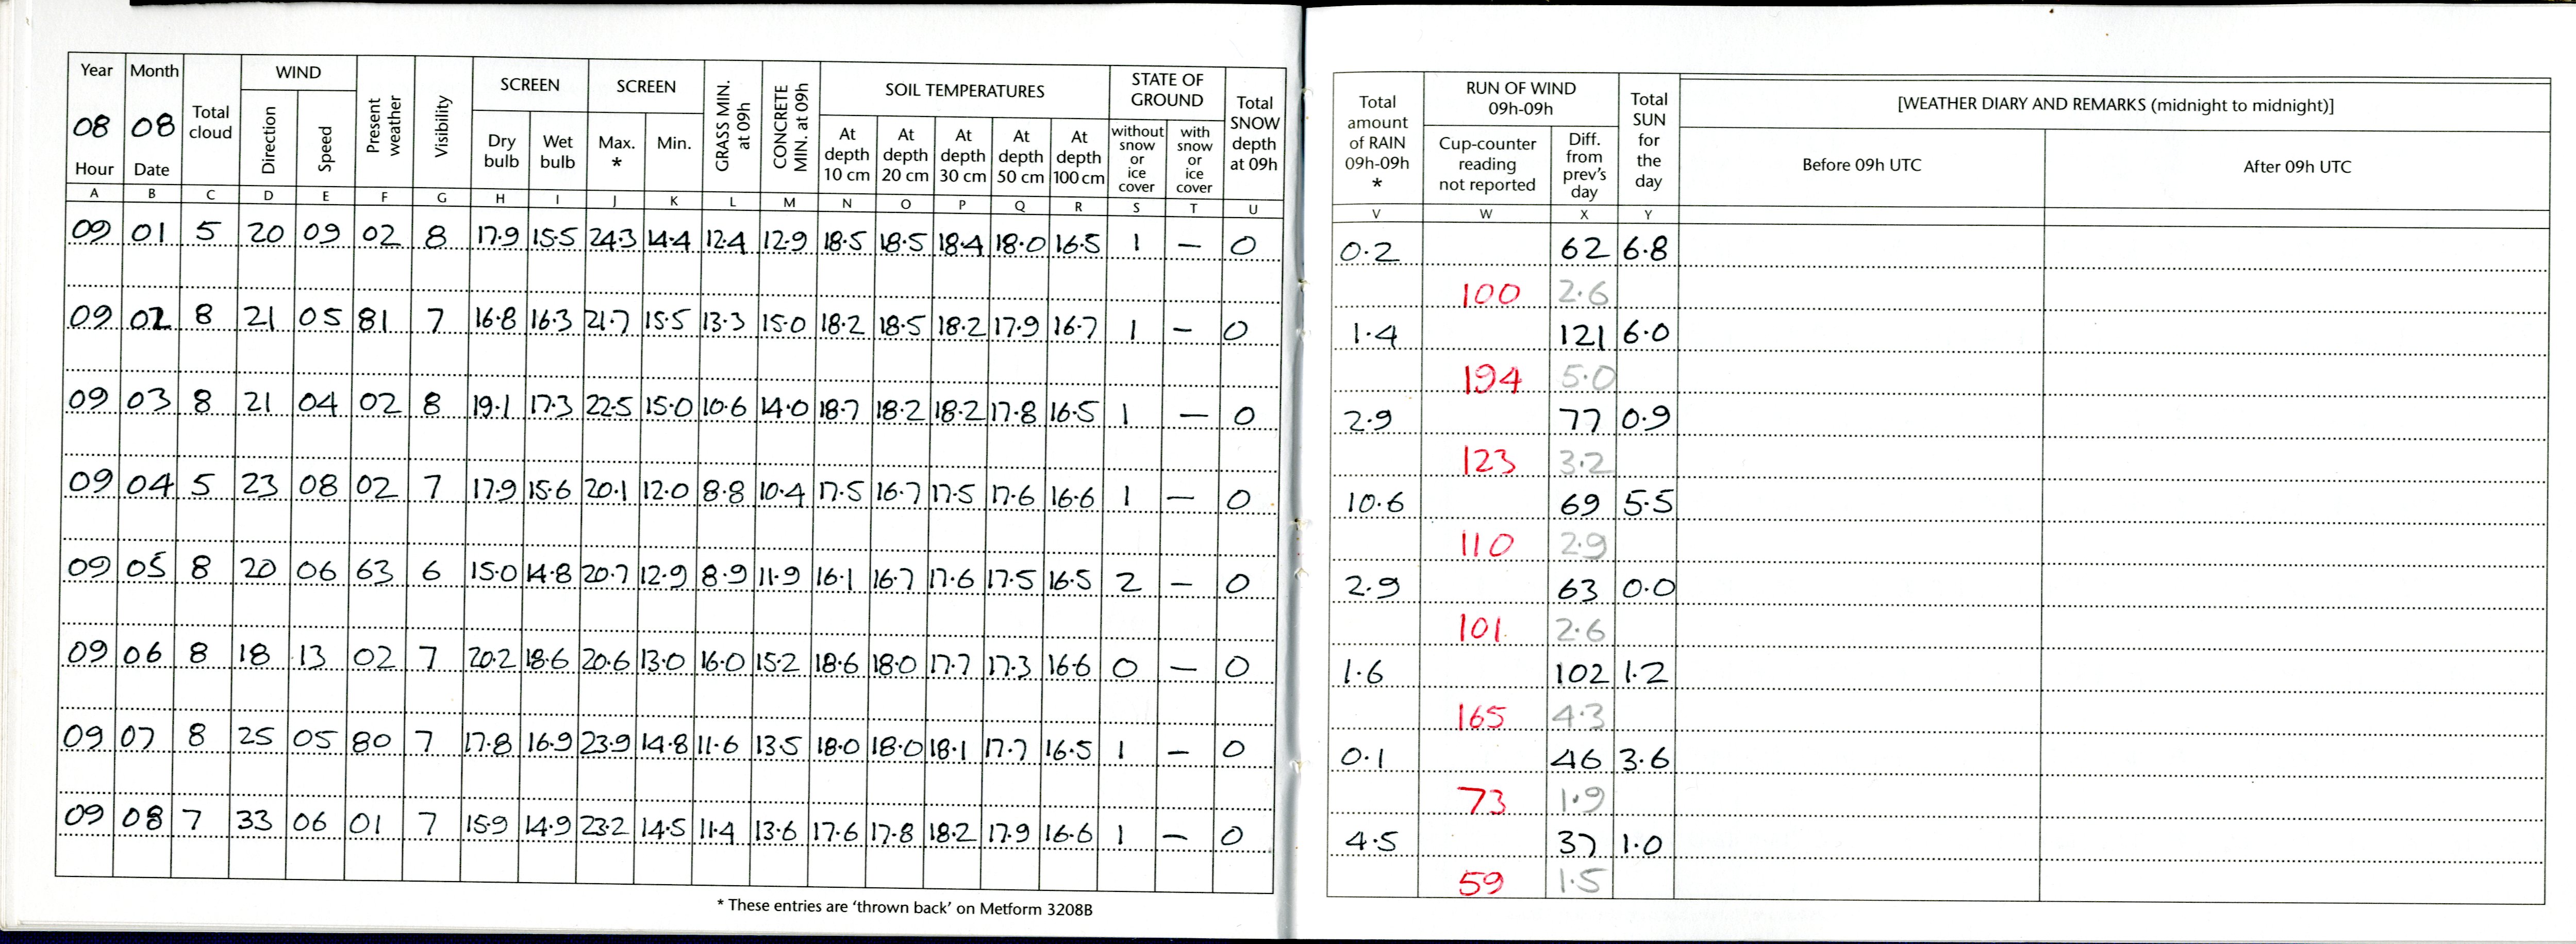 Year Month Total cloud WIND Present weather Visibility SCREEN SCREEN GRASS MIN. at 09h CONCRETE MIN. at 09h SOIL TEMPERATURES STATE OF GROUND Total SNOW depth at 09h
08 08 Direction Speed Dry bulb Wet bulb Max. * Min. At depth 10 cm At depth 20 cm At depth 30 cm At depth 50 cm At depth 100 cm without snow or ice cover with snow or ice cover
Hour Date
A B C D E F G H I J K L M N O P Q R S T U
09 01 5 20 09 02 8 17.9 15.5 24.3 14.4 12.4 12.9 18.5 18.5 18.4 18.0 16.5 1 — 0
09 02 8 21 05 81 7 16.8 16.3 21.7 15.5 13.3 15.0 18.2 18.5 18.2 17.9 16.7 1 — 0
09 03 8 21 04 02 8 19.1 17.3 22.5 15.0 10.6 14.0 18.7 18.2 18.2 17.8 16.5 1 — 0
09 04 5 23 08 02 7 17.9 15.6 20.1 12.0 8.8 10.4 17.5 16.7 17.5 17.6 16.6 1 — 0
09 05 8 20 06 63 6 15.0 14.8 20.7 12.9 8.9 11.9 16.1 16.7 17.6 17.5 16.5 2 — 0
09 06 8 18 13 02 7 20.2 18.6 20.6 13.0 16.0 15.2 18.6 18.0 17.7 17.3 16.6 0 — 0
09 07 8 25 05 80 7 17.8 16.9 23.9 14.8 11.6 13.5 18.0 18.0 18.1 17.7 16.5 1 — 0
09 08 7 33 06 01 7 15.9 14.9 23.2 14.5 11.4 13.6 17.6 17.8 18.2 17.9 16.6 1 — 0
* These entries are 'thrown back' on Metform 3208B
Total amount of RAIN 09h-09h * RUN OF WIND 09h-09h Total SUN for the day [WEATHER DIARY AND REMARKS (midnight to midnight)]
Cup-counter reading not reported Diff. from prev's day Before 09h UTC After 09h UTC
V W X Y
0.2 62 6.8
100 2.6
1.4 121 6.0
194 5.0
2.9 77 0.9
123 3.2
10.6 69 5.5
110 2.9
2.9 63 0.0
101 2.6
1.6 102 1.2
165 4.3
0.1 46 3.6
73 1.9
4.5 37 1.0
59 1.5